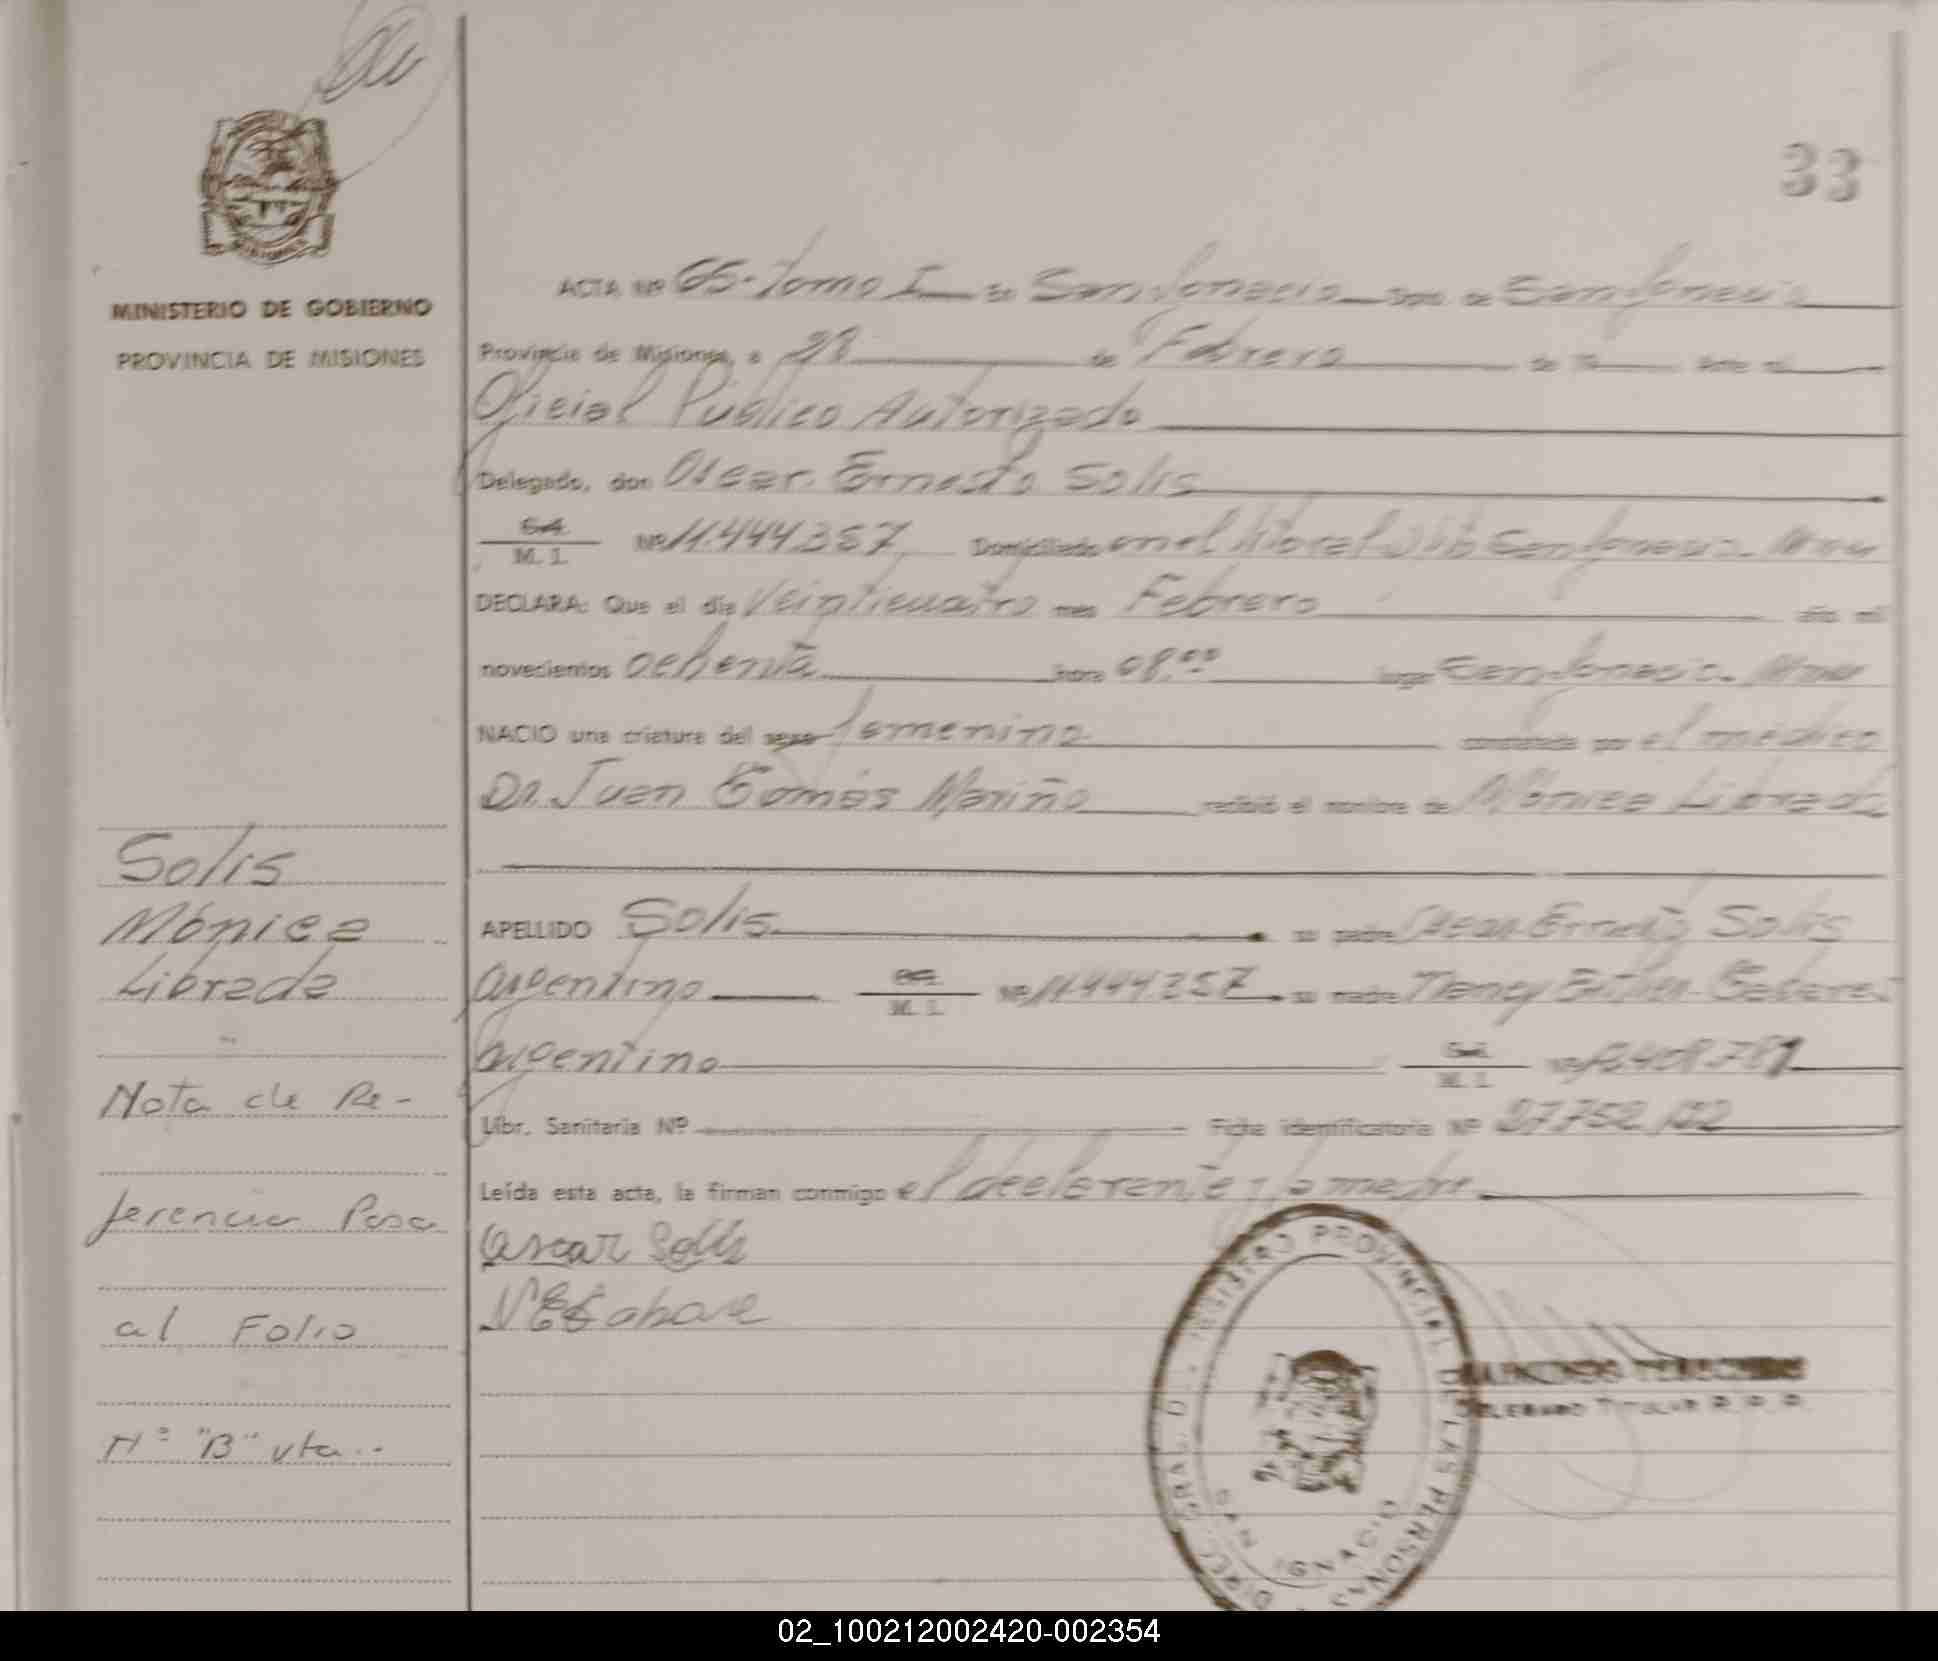 33
MINISTERIO DE GOBIERNO
PROVINCIA DE MISIONES
ACTA Nº 65-Tomo I en San Ignacio Dpto. de San Ignacio
Provincia de Misiones, a 28 de Febrero de 19 Ante mí
Oficial Público Autorizado
Delegado, don Oscar Ernesto Solis
M. I. Nº 11.444.357 Domiciliado en el San Ignacio. Mnes
DECLARA: Que el día Veinticuatro mes Febrero año mil
novecientos ochenta hora 08,00 lugar San Ignacio. Mnes
NACIO una criatura del sexo femenino constatado por el médico
Dr. Juan Tomás Mariño recibió el nombre de Mónica Librada
APELLIDO Solis su padre Oscar Ernesto Solis
argentino M. I. Nº 11.444.357 su madre Nancy Esther
argentina M. I. Nº
Libr. Sanitaria Nº Ficha identificatoria Nº 27.752.102
Leída esta acta, la firman conmigo el declarante y la madre
Oscar Solis
Solis
Mónica
Librada
Nota de Re-
ferencia Pasa
al Folio
Nº "B" vta.
DIREC. GRAL. D. REGISTRO PROVINCIAL DE LAS PERSONAS
SAN IGNACIO
DELEGADO TITULAR
02_100212002420-002354